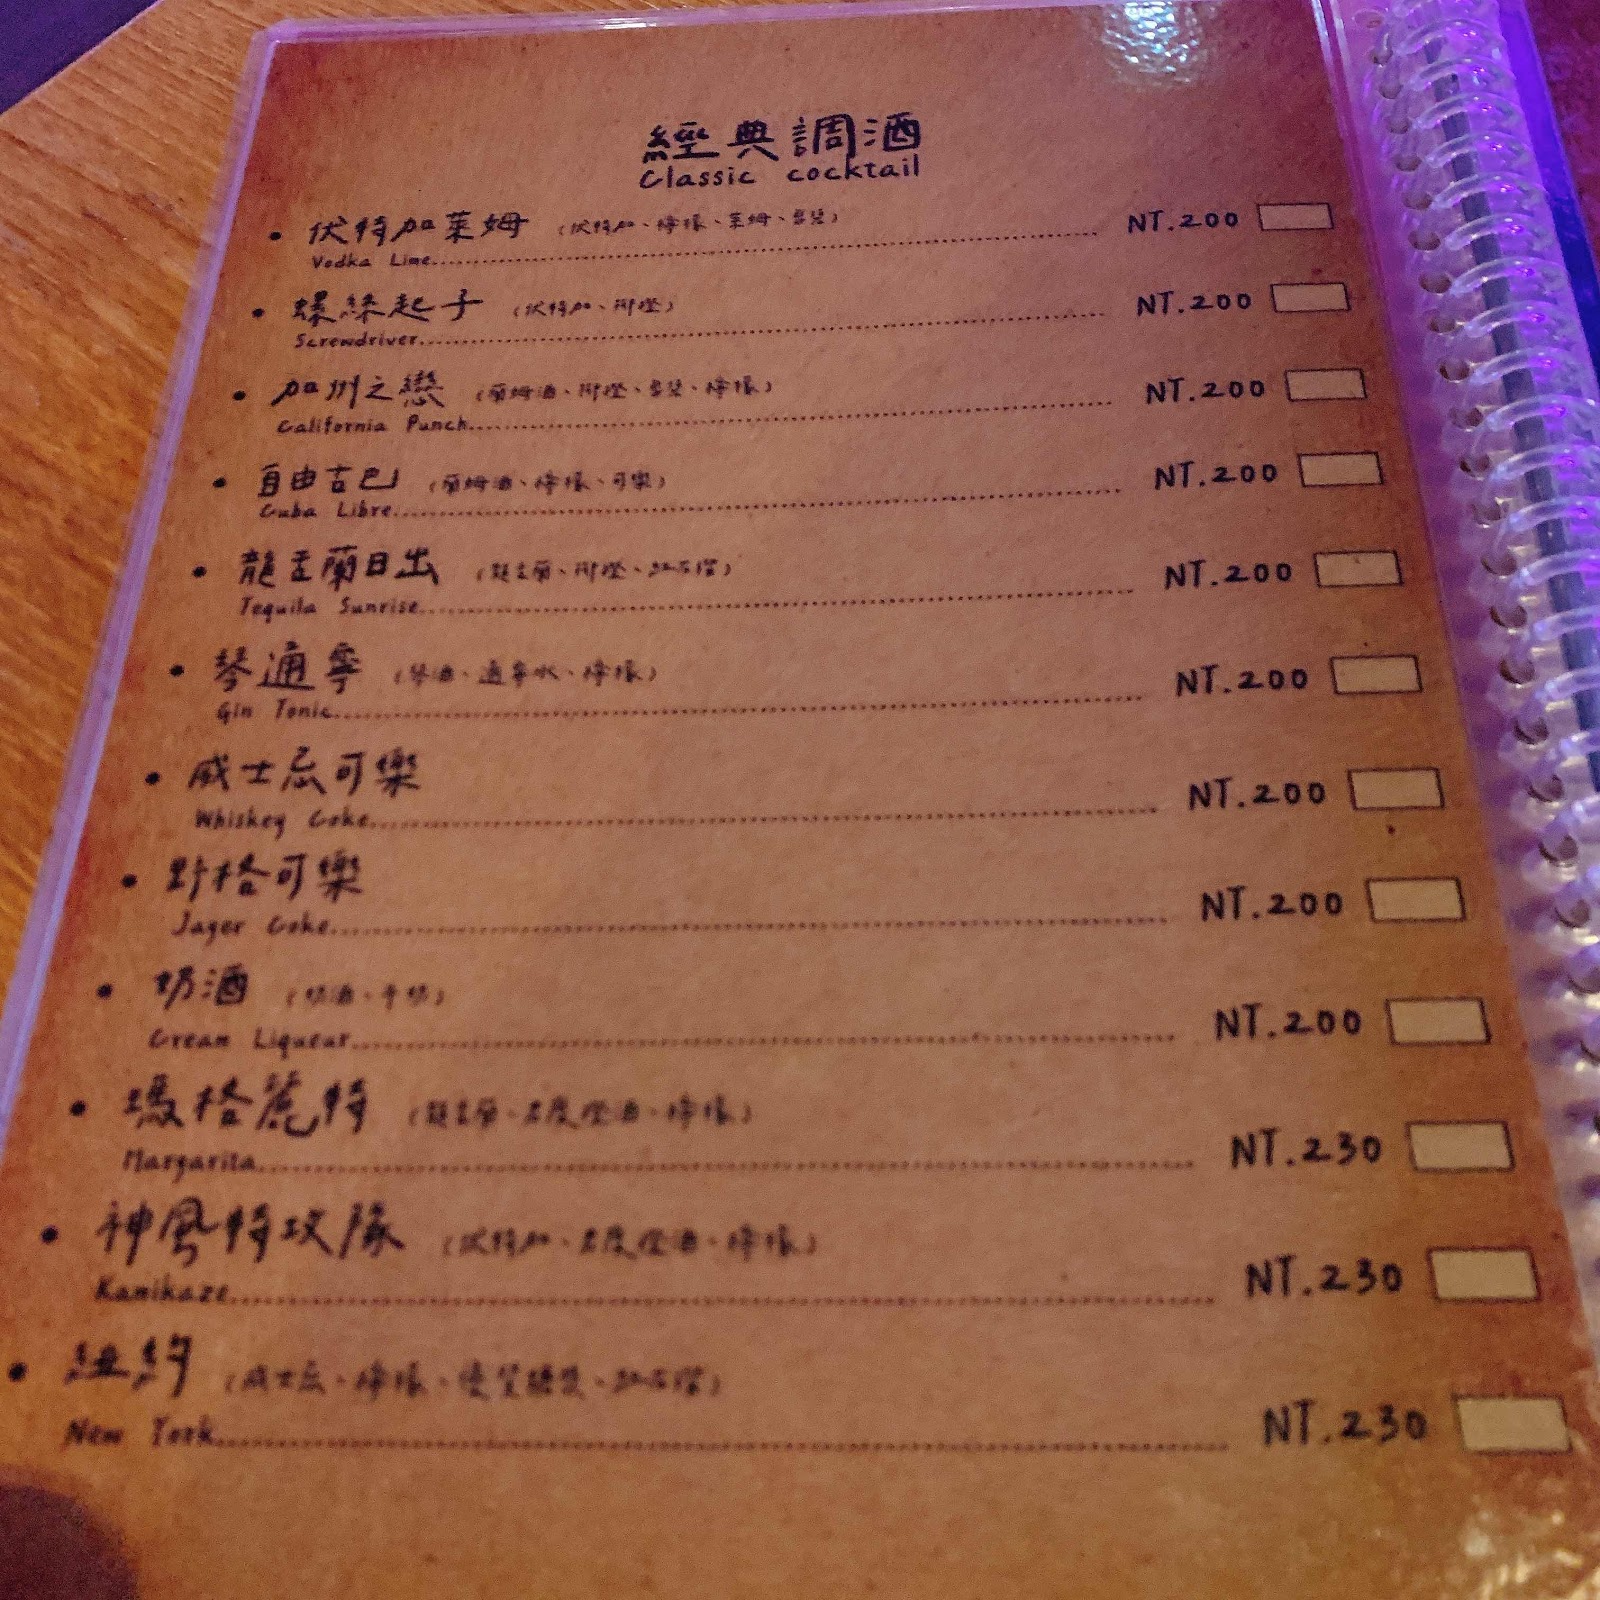 經典調酒
Classic cocktail
• 伏特加萊姆 (伏特加、檸檬、萊姆、雪碧) NT.200
Vodka Lime
• 螺絲起子 (伏特加、柳橙) NT.200
Screwdriver
• 加州之戀 (蘭姆酒、柳橙、雪碧、檸檬) NT.200
California Punch
• 自由古巴 (蘭姆酒、檸檬、可樂) NT.200
Cuba Libre
• 龍舌蘭日出 (龍舌蘭、柳橙、紅石榴) NT.200
Tequila Sunrise
• 琴通寧 (琴酒、通寧水、檸檬) NT.200
Gin Tonic
• 威士忌可樂 NT.200
Whiskey Coke
• 野格可樂 NT.200
Jager Coke
• 奶酒 (奶酒、牛奶) NT.200
Cream Liqueur
• 瑪格麗特 (龍舌蘭、君度橙酒、檸檬) NT.230
Margarita
• 神風特攻隊 (伏特加、君度橙酒、檸檬) NT.230
Kamikaze
• 紐約 (威士忌、檸檬、紅石榴) NT.230
New York